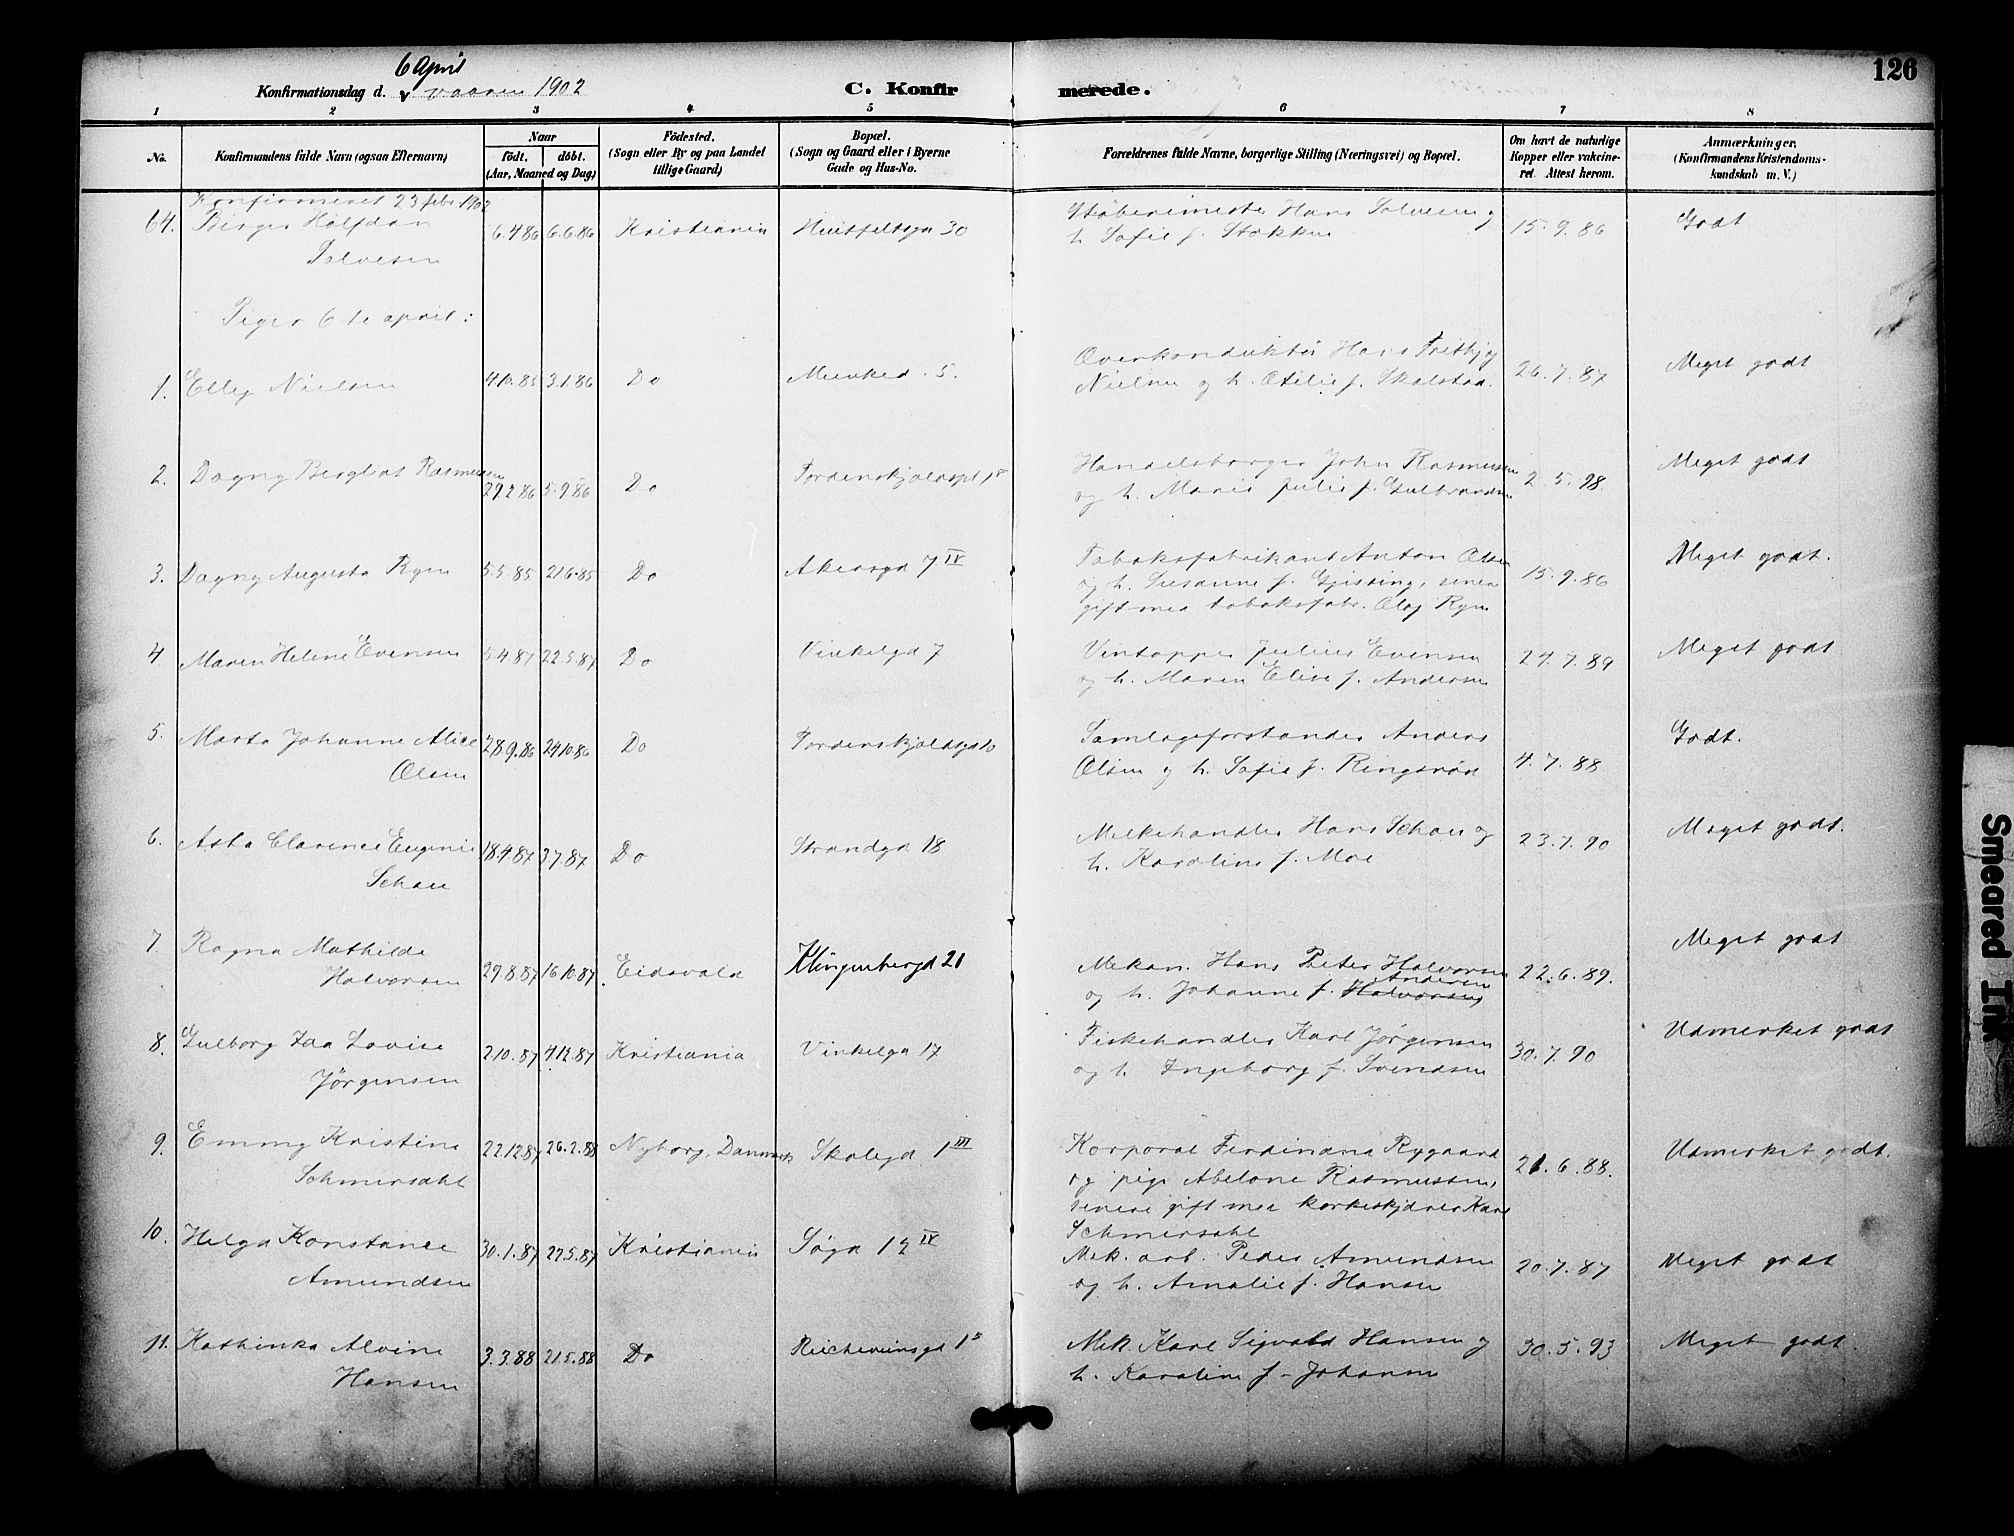 126
6 April
Konfirmationsdag d. vaaren 1902
C. Konfirmerede.
1 2 3 4 5 6 7 8
No.
Konfirmandens fulde Navn (ogsaa Efternavn)
Naar
födt. döbt.
(Aar, Maaned og Dag)
Födested.
(Sogn eller By og paa Landet
tillige Gaard)
Bopæl.
(Sogn og Gaard eller i Byerne
Gade og Hus-No.
Forældrenes fulde Navne, borgerlige Stilling (Næringsvei) og Bopæl.
Om havt de naturlige
Kopper eller vakcine-
ret. Attest herom.
Anmærkninger.
(Konfirmandens Kristendoms-
kundskab m. V.)
Konfirmeret 23 febr. 1902
64. Birger Halfdan 6.4.86 6.6.86 Kristiania Huitfeltsgd 30 Støberimester Hans Salvesen og 15.9.86 Godt
Salvesen h. Sofie f. Stokken
Piger 6te april:
1. Elley Nielsen 4.10.85 3.1.86 Do Munked. 5. Overkonduktør Hans Frithj og 26.7.87 Meget godt
Nielsen og h. Otilie f. Skolstad.
2. Dagny Bergliot Rasmussen 29.2.86 5.9.86 Do Tordenskjoldspl 1 Handelsborger John Rasmussen 2.5.98. Meget godt
og h. Marie Julie f. Gulbrandsen
3. Dagny Augusta Ryen 5.5.85 21.6.85 Do Akersgd 7 IV Tobaksfabrikant Anton Olsen 15.9.86 Meget godt.
og h. Susanne f. Gjissing, senere
gift med tobaksfabr. Olaf Ryen
4 Maren Helene Evensen 5.4.87 22.5.87 Do Vinkelgd 7 Vintapper Julius Evensen 24.7.89 Meget godt
og h. Maren Elise f. Andersen
5. Marta Johanne Alice 28.9.86 24.10.86 Do Tordenskjoldsgd 10 Samlagsforstander Anders 4.7.88 Godt.
Olsen Olsen og h. Sofie f. Ringsrød
6. Asta Clarence Eugenie 18.4.87 3.7.87 Do Strandgd 18 Melkehandler Hans Schau og 23.7.90 Meget godt.
Schau h. Karoline f. Moe
7. Ragna Mathilde Meget godt
Halvorsen 29.8.87 16.10.87 Eidsvold Klingenbergd 21 Mekan. Hans Peter Halvorsen 22.6.89.
og h. Johanne f. Halvorsen Andersen
8. Gulborg Ida Lovise 2.10.87 4.12.87 Kristiania Vinkelgd 17 Fiskehandler Karl Jørgensen 30.7.90 Udmerket godt
Jørgensen og h. Ingeborg f. Svendsen
9. Emmy Kristine 22.12.87 26.2.88 Nyborg, Danmark Skolegd. 1 III Korporal Ferdinand Rygaard 21.6.88. Udmerket godt.
Schmersahl og pige Abelone Rasmussen,
senere gift med korkeskjærer Karl
Schmersahl
10. Helga Konstance 30.1.87 22.5.87 Kristiania Søgd 12 IV Mek. arb. Peder Amundsen 20.7.87 Meget godt
Amundsen og h. Amalie f. Hansen
11. Kathinka Alvine 3.3.88 21.5.88 Do 1 Mek. Karl Sigvald Hansen og 30.5.93 Meget godt.
Hansen h. Karoline f. Johansen
Smeared Ink